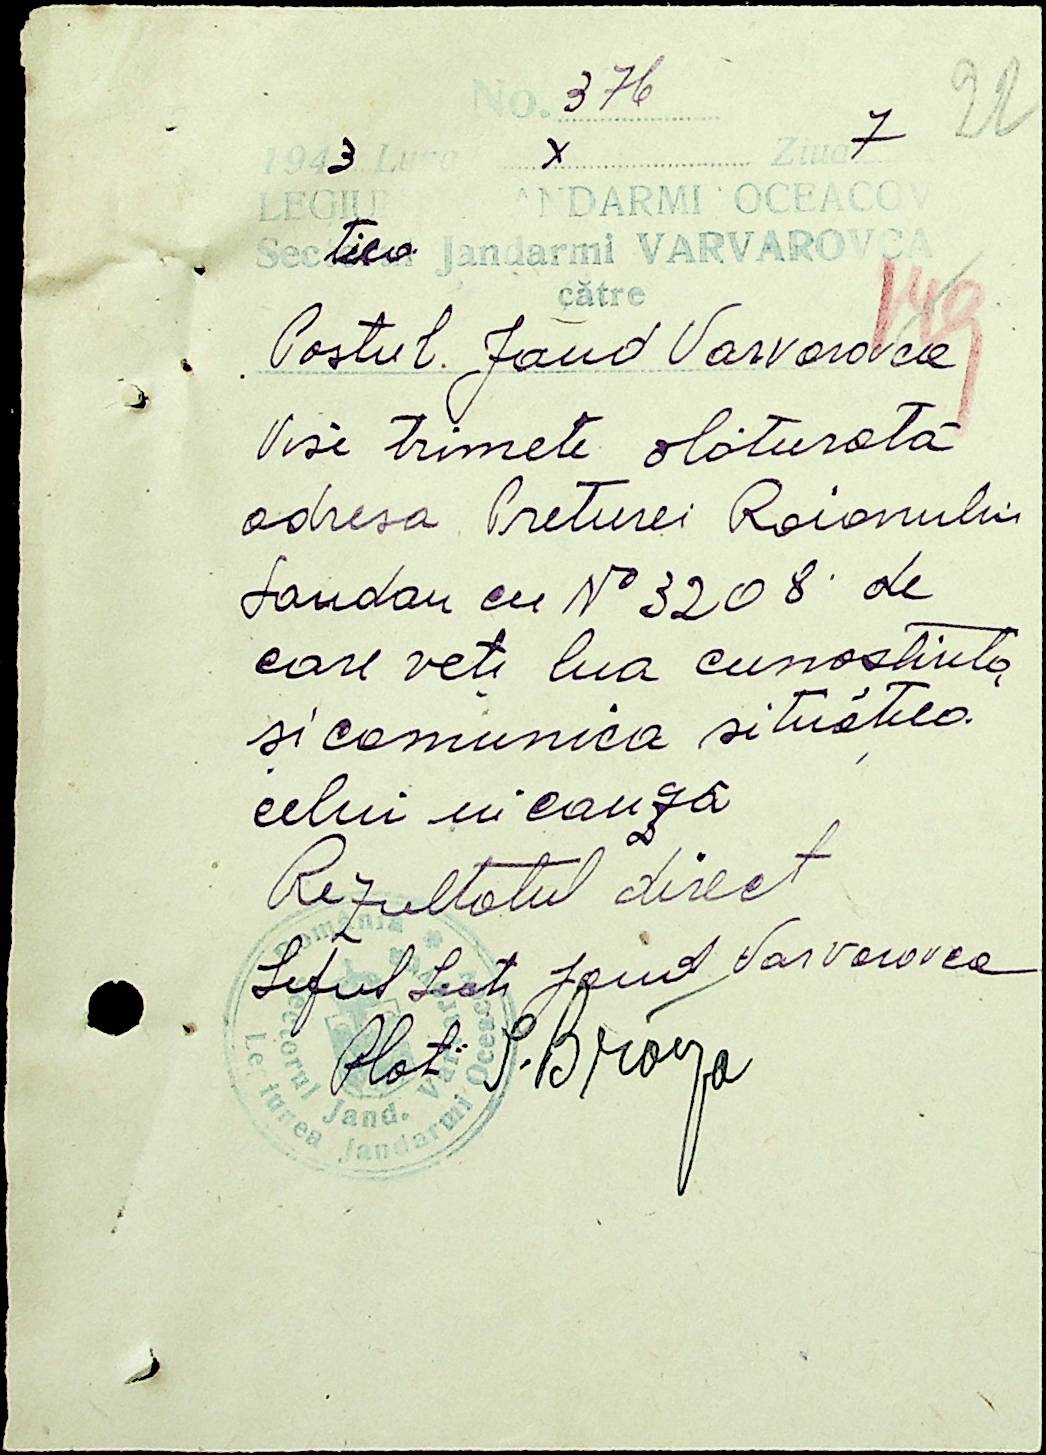 22
No. 376
1943 Luna X Ziua 7
LEGIU ANDARMI OCEACOV
Sectorul Jandarmi VARVAROVCA
către
149
Postul. Jand Varvarovca
Vi se trimete alăturată
adresa Preturei Raionului
Landau cu No 3208 de
care veți lua cunoștință
și comunica situația
celui in cauză
Rezultatul direct
Șeful Sect. Jand Varvarovca
Plot. S. Broya
România
Sectorul Jand. Varvarovca
Legiunea Jandarmi Oceacov